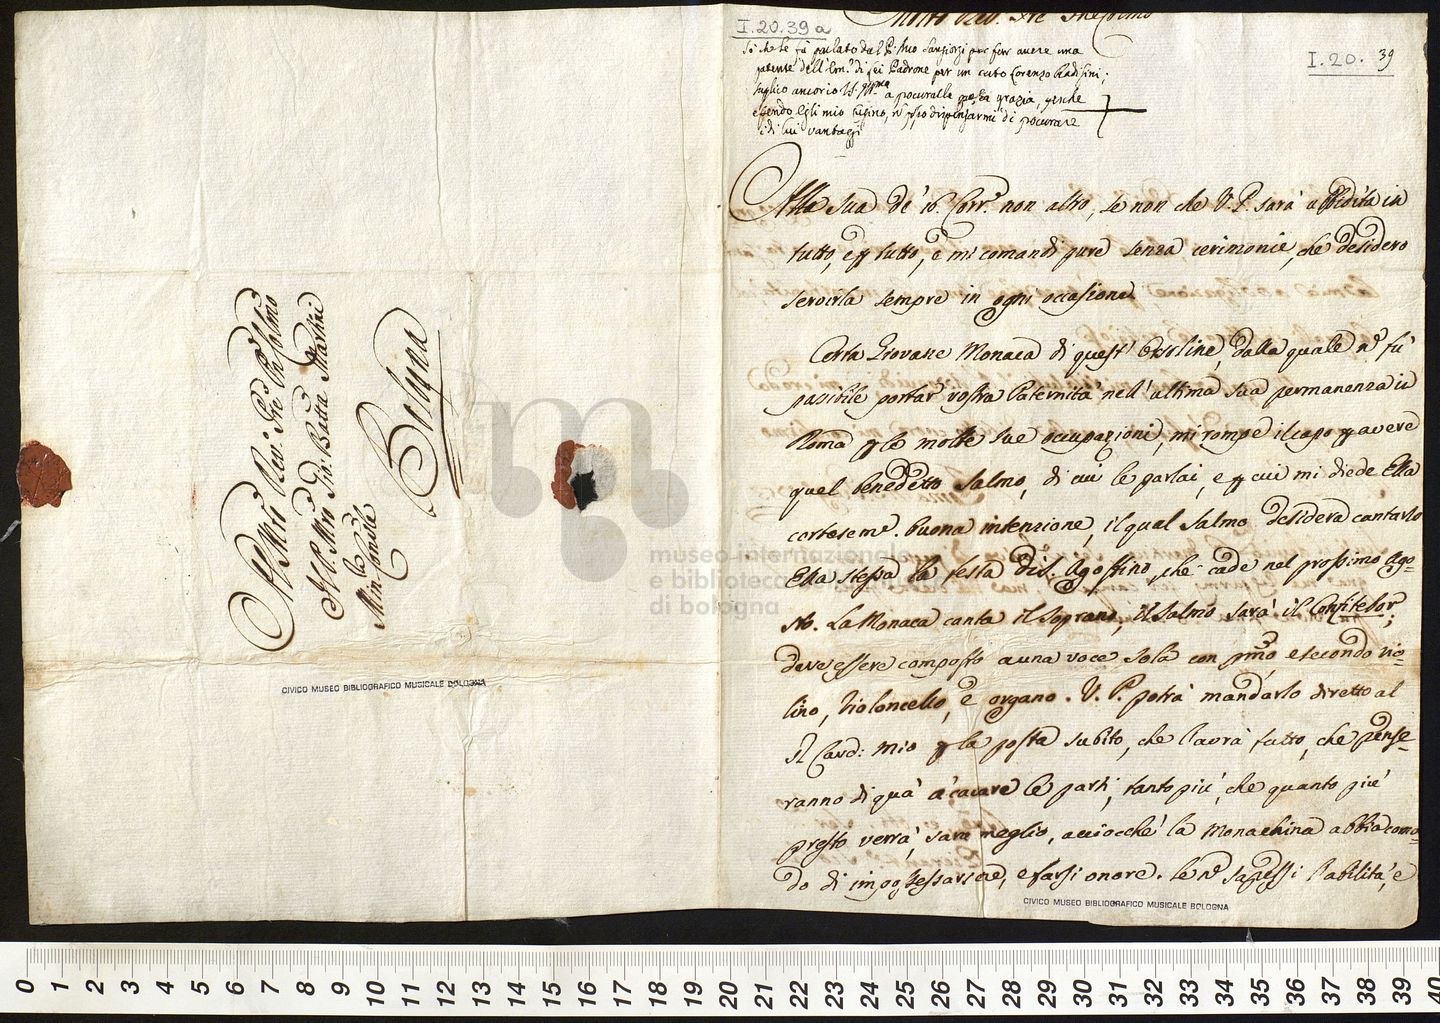 Al Molto Rev: Pre Pad: Colmo
Il P. Mro Gio: Batta Martini
Min: Conule
Bologna
CIVICO MUSEO BIBLIOGRAFICO MUSICALE BOLOGNA
I.20.39a
I.20. 39
Molto Rev. Pre
parlato dal P. per fare avere una
patente dell'Em.º di lei Padrone per un certo Lorenzo
ancor io V.P. M.ra a procuralle questa grazia, perche
essendo egli mio Cugino, nº posso dispensarmi di procurare
i di lui vantaggi
Alla sua de' 16. Corr.e non altro, se non che V.P. sarà ubbidita in
tutto, e p tutto, e mi comandi pure senza cerimonie, che desidero
servirla sempre in ogni occasione.
Certa Giovane Monaca di quest' Orsoline, dalla quale nº fù
possibile portar vostra Paternità nell' ultima sua permanenza in
Roma p le molte sue occupazioni, mi rompe il capo p avere
quel benedetto Salmo, di cui le parlai, e p cui mi diede Ella
cortesemе. buona intenzione, il qual Salmo desidera cantarlo
Ella stessa la festa di S. Agostino, che cade nel prossimo Ago-
sto. La Monaca canta il Soprano, il Salmo sarà il Confitebor;
deve essere composto a una voce sola con pmo, e secondo vio-
lino, Violoncello, e organo. V. P. potrà mandarlo diretto al
Sr. Card: mio p la posta subito, che l'avrà fatto, che pense-
ranno di quà a cavare le parti, tanto più, che quanto più
presto verrà, sarà meglio, acciocchè la Monachina abbia como-
do di impossessarsene, e farsi onore. Se nº sapessi l'abilità, e
CIVICO MUSEO BIBLIOGRAFICO MUSICALE BOLOGNA
museo internazionale
e biblioteca
di bologna
0 1 2 3 4 5 6 7 8 9 10 11 12 13 14 15 16 17 18 19 20 21 22 23 24 25 26 27 28 29 30 31 32 33 34 35 36 37 38 39 40